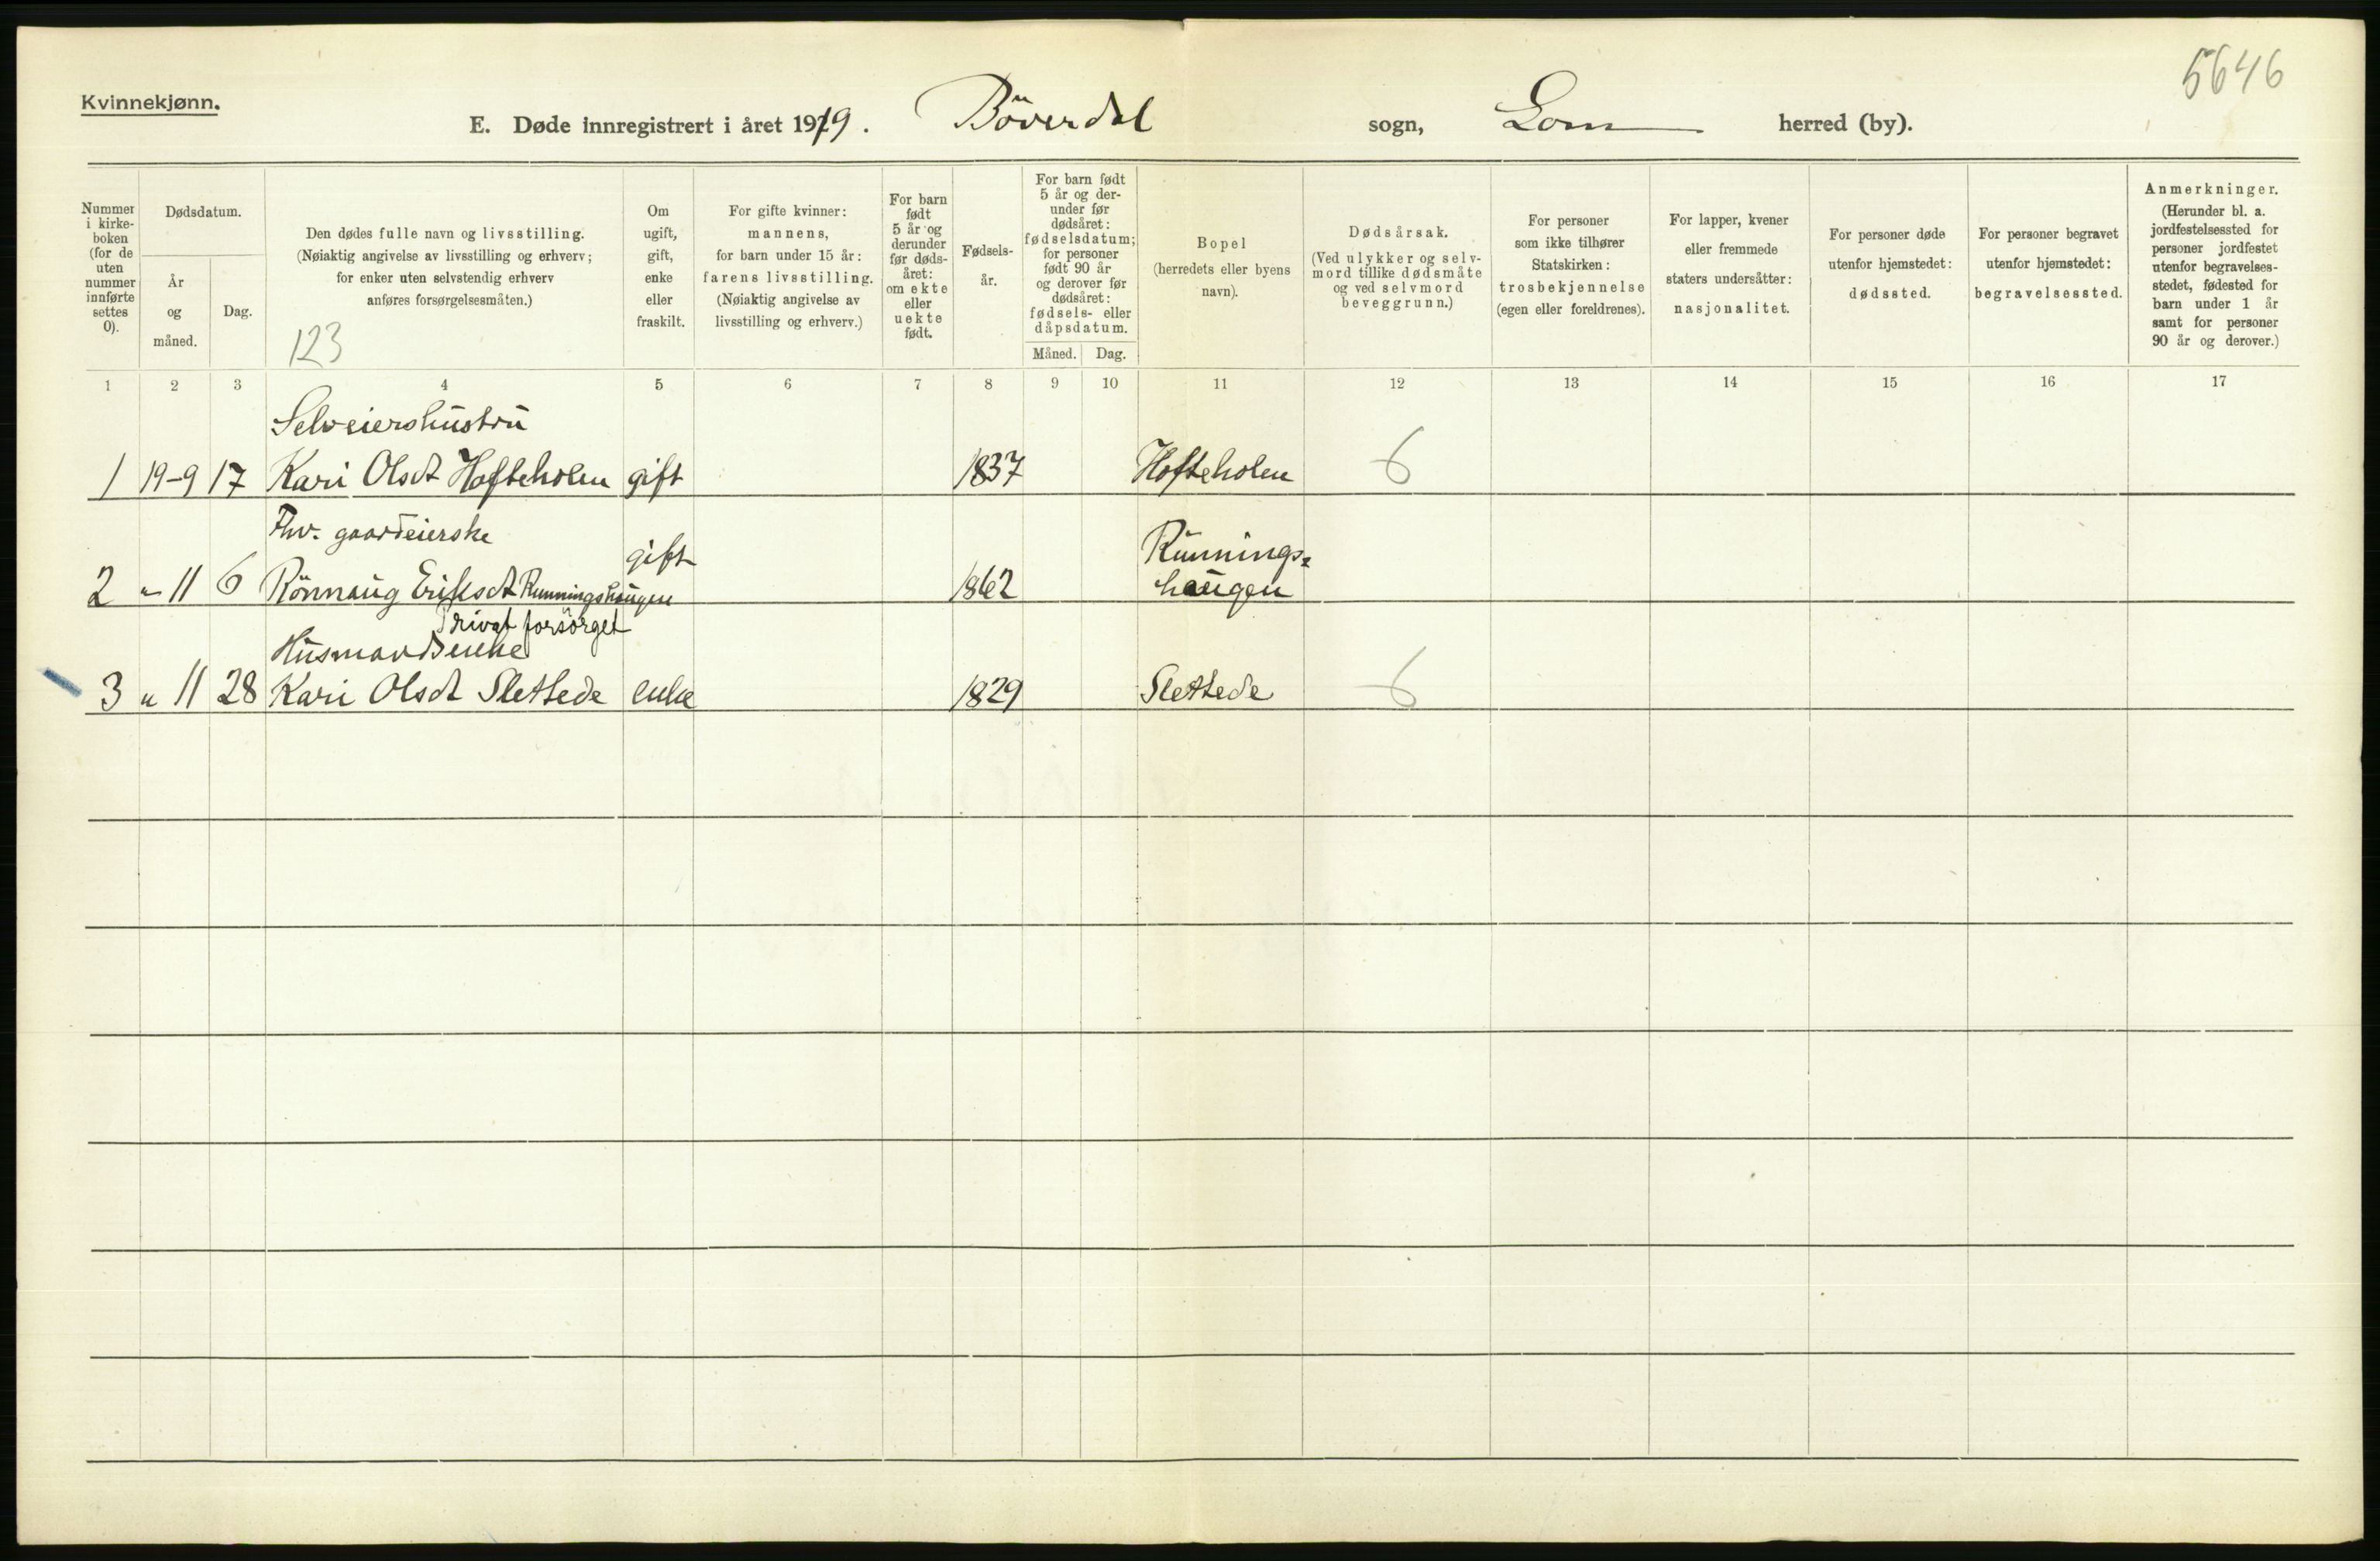 5646
Kvinnekjønn.
E. Døde innregistrert i året 1919. Böverdal sogn, Lom herred (by).
Nummer
i kirke-
boken
(for de
uten
nummer
innførte
settes
0).
Dødsdatum.
År
og
måned.
Dag.
Den dødes fulle navn og livsstilling.
(Nøiaktig angivelse av livsstilling og erhverv;
for enker uten selvstendig erhverv
anføres forsørgelsesmåten.)
123
Om
ugift,
gift,
enke
eller
fraskilt.
For gifte kvinner:
mannens,
for barn under 15 år:
farens livsstilling.
(Nøiaktig angivelse av
livsstilling og erhverv.)
For barn
født
5 år og
derunder
før døds-
året:
om ekte
eller
uekte
født.
Fødsels-
år.
For barn født
5 år og der-
under før
dødsåret:
fødselsdatum;
for personer
født 90 år
og derover før
dødsåret:
fødsels- eller
dåpsdatum.
Måned. Dag.
Bopel
(herredets eller byens
navn).
Dødsårsak.
(Ved ulykker og selv-
mord tillike dødsmåte
og ved selvmord
beveggrunn.)
For personer
som ikke tilhører
Statskirken:
trosbekjennelse
(egen eller foreldrenes).
For lapper, kvener
eller fremmede
staters undersåtter:
nasjonalitet.
For personer døde
utenfor hjemstedet:
dødssted.
For personer begravet
utenfor hjemstedet:
begravelsessted.
Anmerkninger.
(Herunder bl. a.
jordfestelsessted for
personer jordfestet
utenfor begravelses-
stedet, fødested for
barn under 1 år
samt for personer
90 år og derover.)
1 2 3 4 5 6 7 8 9 10 11 12 13 14 15 16 17
Selveiershustru
1 19-9 17 Kari Olsdt Hofteholen gift 1837 Hofteholen 6
Fhv. gaardeierske
gift Runnings=
2 " 11 6 Rönnaug Eriksdt Runningshaugen 1862 haugen
Privat forsörget
Husmandsenke
3 " 11 28 Kari Olsdt Slettede enke 1829 Slettede 6